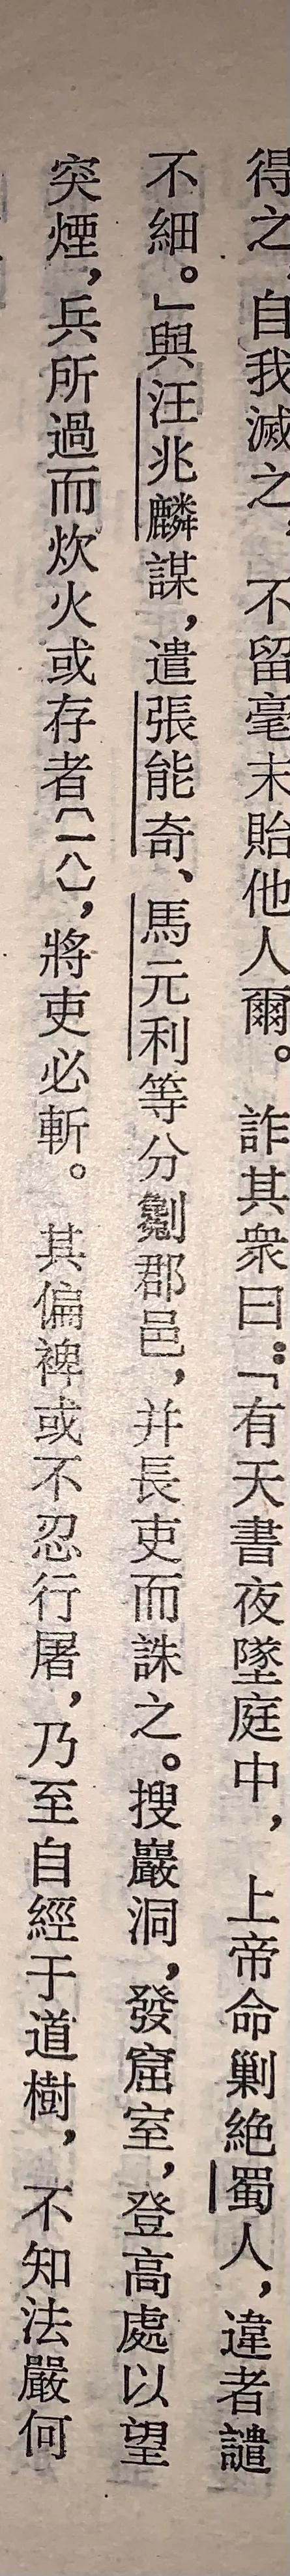 得之，自我滅之，不留毫末貽他人爾。詐其衆曰：「有天書夜墜庭中，上帝命剿絕蜀人，違者譴
不細。」與汪兆麟謀，遣張能奇、馬元利等分剿郡邑，并長吏而誅之。搜巖洞，發窟室，登高處以望
突煙，兵所過而炊火或存者〔一八〕，將吏必斬。其偏裨或不忍行屠，乃至自經于道樹，不知法嚴何